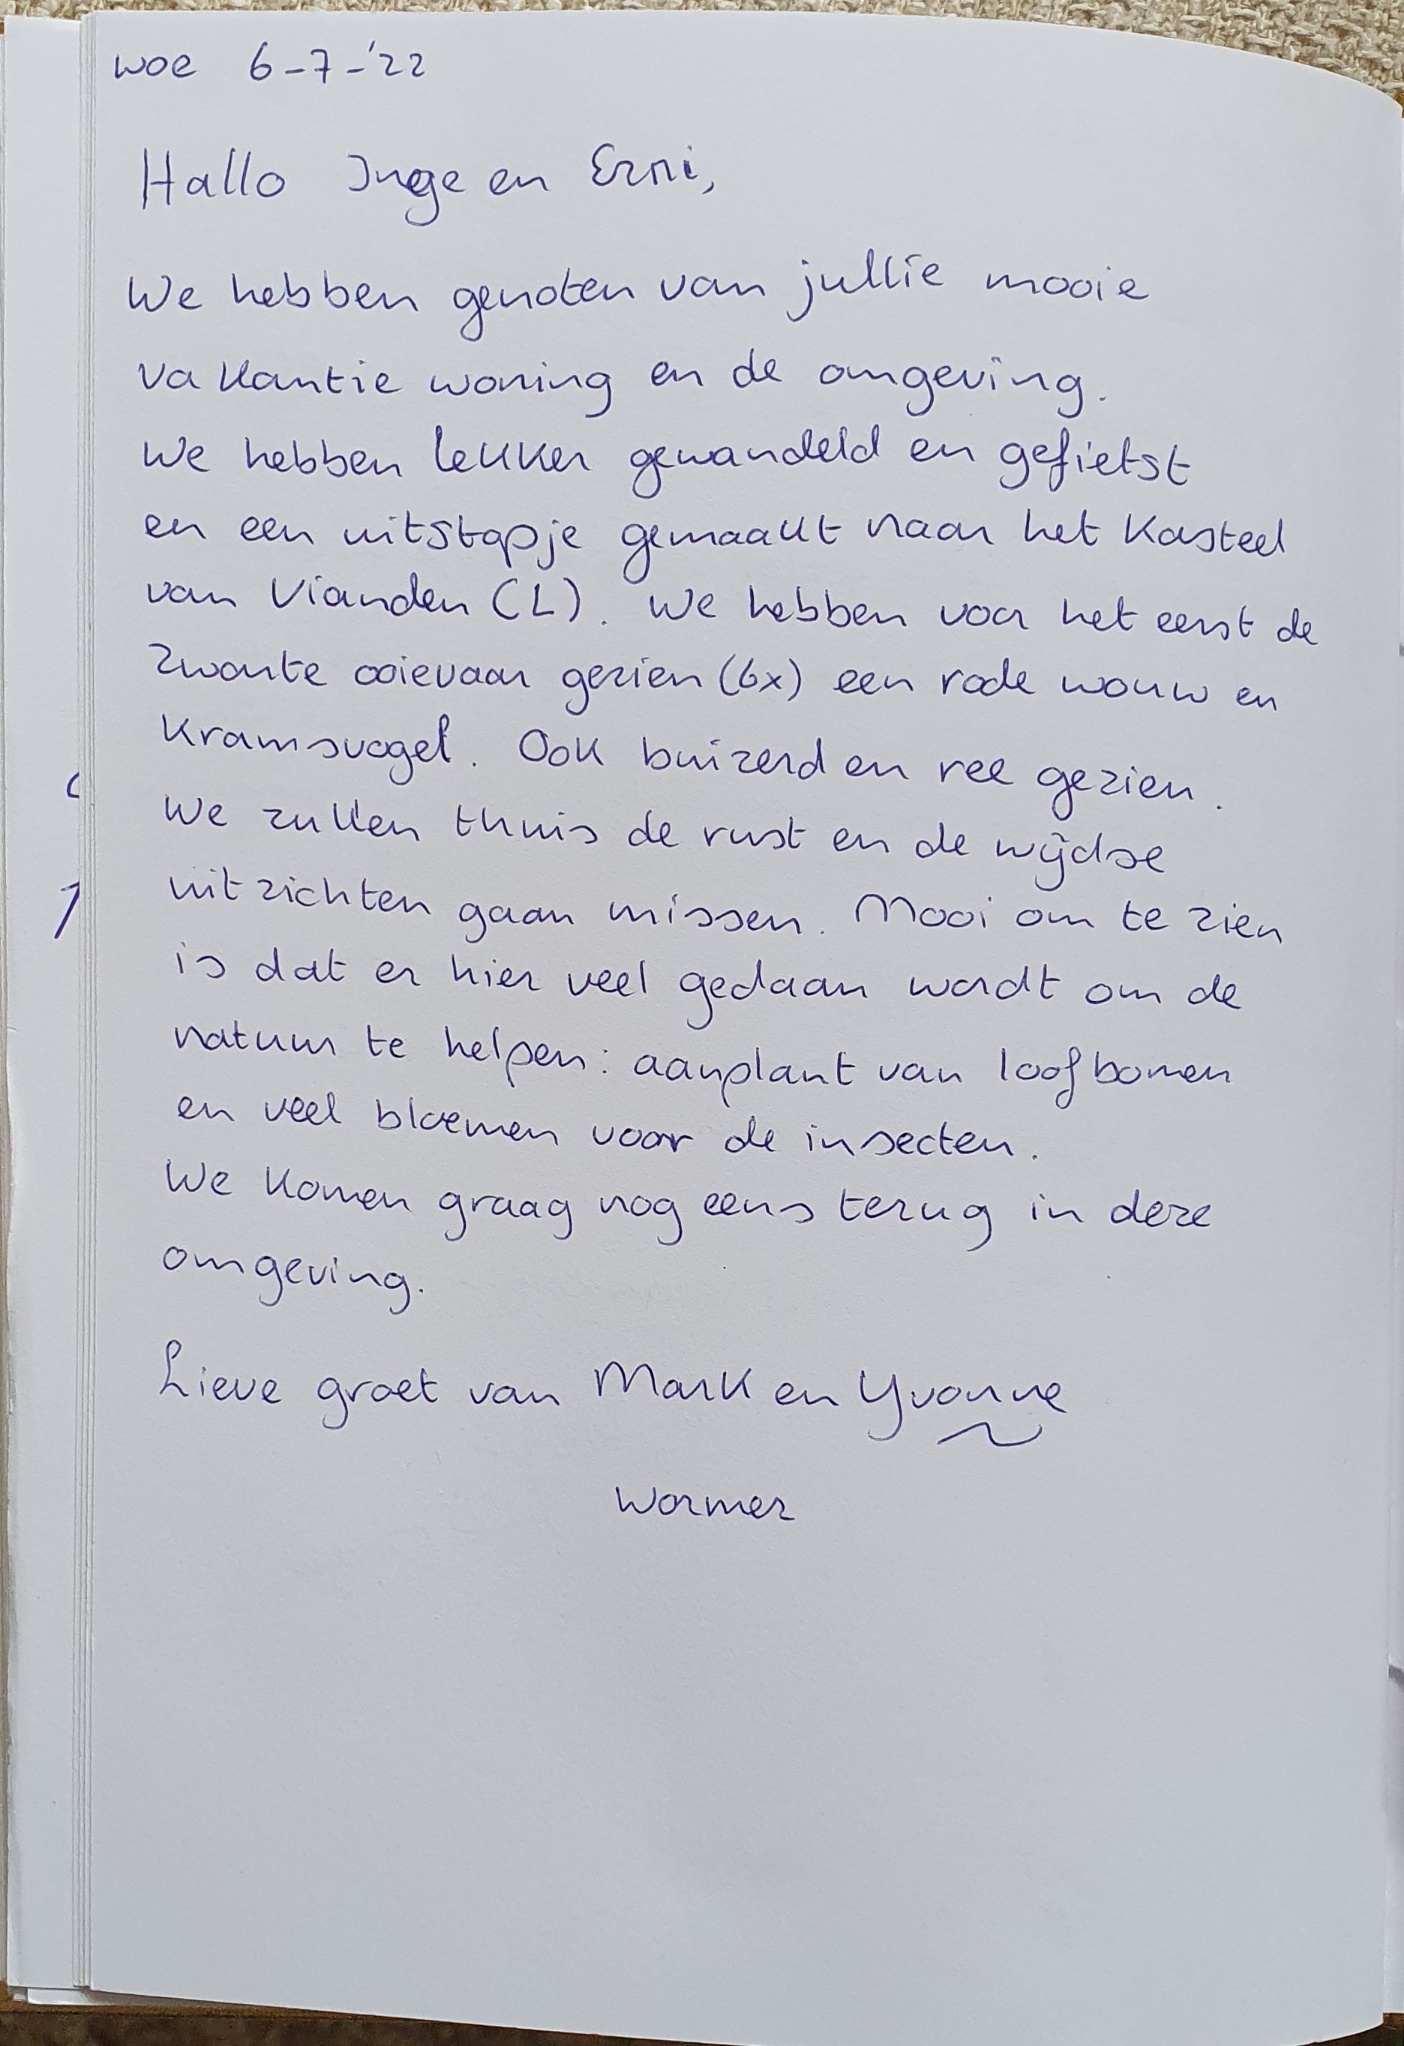 woe 6-7-'22
Hallo Inge en Erni,
We hebben genoten van jullie mooie
vakantie woning en de omgeving.
We hebben lekker gewandeld en gefietst
en een uitstapje gemaakt naar het kasteel
van Vianden (L). We hebben voor het eerst de
zwarte ooievaar gezien (6x) een rode wouw en
kramsvogel. Ook buizerd en ree gezien.
We zullen thuis de rust en de wijdse
uitzichten gaan missen. Mooi om te zien
is dat er hier veel gedaan wordt om de
natuur te helpen: aanplant van loofbomen
en veel bloemen voor de insecten.
We komen graag nog eens terug in deze
omgeving.
Lieve groet van Mark en Yvonne
Wormer